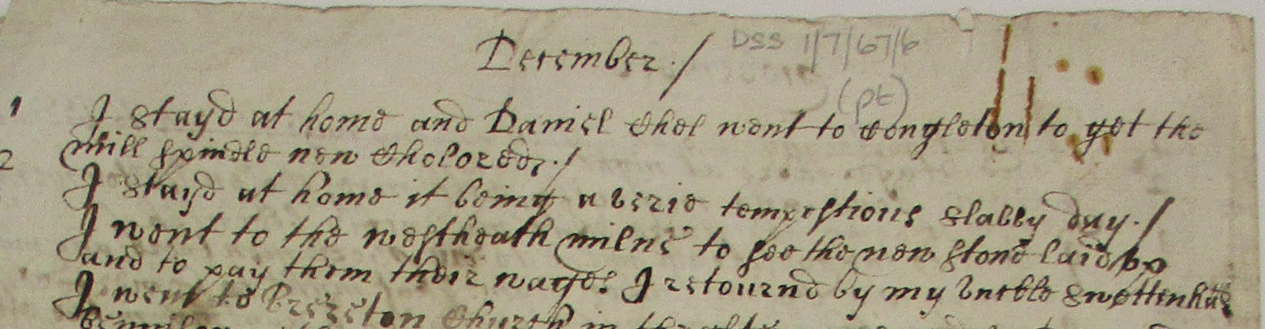 December./ DSS 1/7/67/6
(pt)
1 I stayd at home and Daniel Chel went to Congleton to get the
mill spindle new
2 I stayd at home it being a verie tempestious slabby day./
I went to the westheath milne to see the new stone laid up
and to pay them their wages I retournd by my Swettenha
I went to Brereton Church in